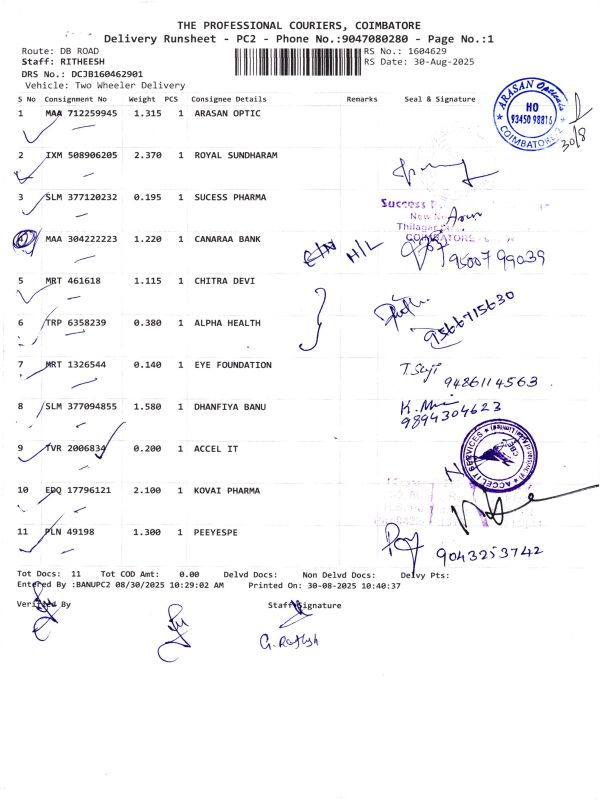 THE PROFESSIONAL COURIERS, COIMBATORE
Delivery Runsheet - PC2 - Phone No.:9047080280 - Page No.:1
Route: DB ROAD RS No.: 1604629
Staff: RITHEESH RS Date: 30-Aug-2025
DRS No.: DCJB160462901
Vehicle: Two Wheeler Delivery
S No Consignment No Weight PCS Consignee Details Remarks Seal & Signature
1 MAA 712259945 1.315 1 ARASAN OPTIC
ARASAN Opticals
HO
93450 98816
COIMBATORE-2
30/8
2 IXM 508906205 2.370 1 ROYAL SUNDHARAM
3 SLM 377120232 0.195 1 SUCESS PHARMA
Success
New
Thilagar
COIMBATORE
4 MAA 304222223 1.220 1 CANARAA BANK
H/L
95007 99039
5 MRT 461618 1.115 1 CHITRA DEVI
6 TRP 6358239 0.380 1 ALPHA HEALTH
9566715630
7 MRT 1326544 0.140 1 EYE FOUNDATION
9486114563
8 SLM 377094855 1.580 1 DHANFIYA BANU
9894304623
9 TVR 2006834 0.200 1 ACCEL IT
ACCEL IT SERVICES
CBE
10 EDQ 17796121 2.100 1 KOVAI PHARMA
11 PLN 49198 1.300 1 PEEYESPE
9043253742
Tot Docs: 11 Tot COD Amt: 0.00 Delvd Docs: Non Delvd Docs: Delvy Pts:
Entered By :BANUPC2 08/30/2025 10:29:02 AM Printed On: 30-08-2025 10:40:37
Verified By Staff Signature